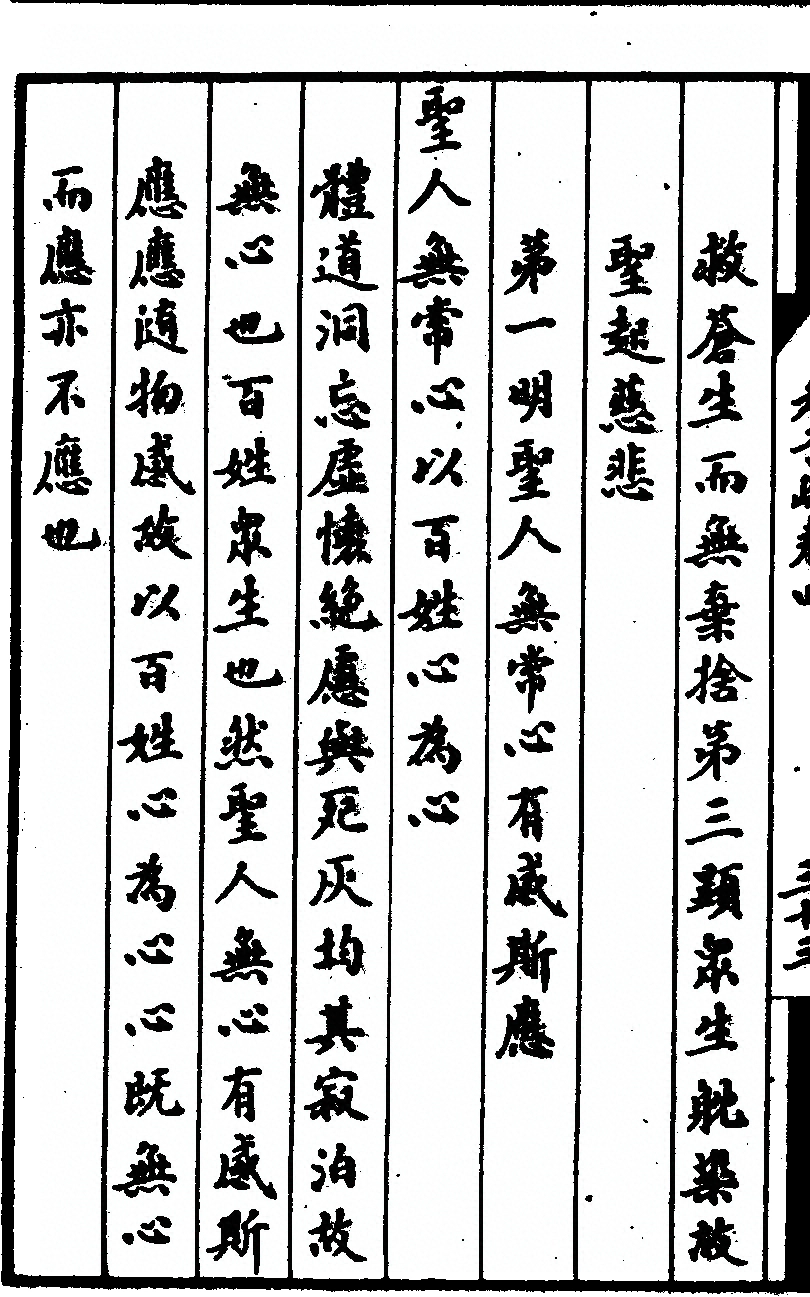 救蒼生而無棄捨第三顯眾生躭染故
聖起慈悲
第一明聖人無常心有感斯應
聖人無常心以百姓心為心
體道洞忘虛懷絕慮與死灰均其寂泊故
無心也百姓眾生也然聖人無心有感斯
應應隨物感故以百姓心為心心既無心
而應亦不應也